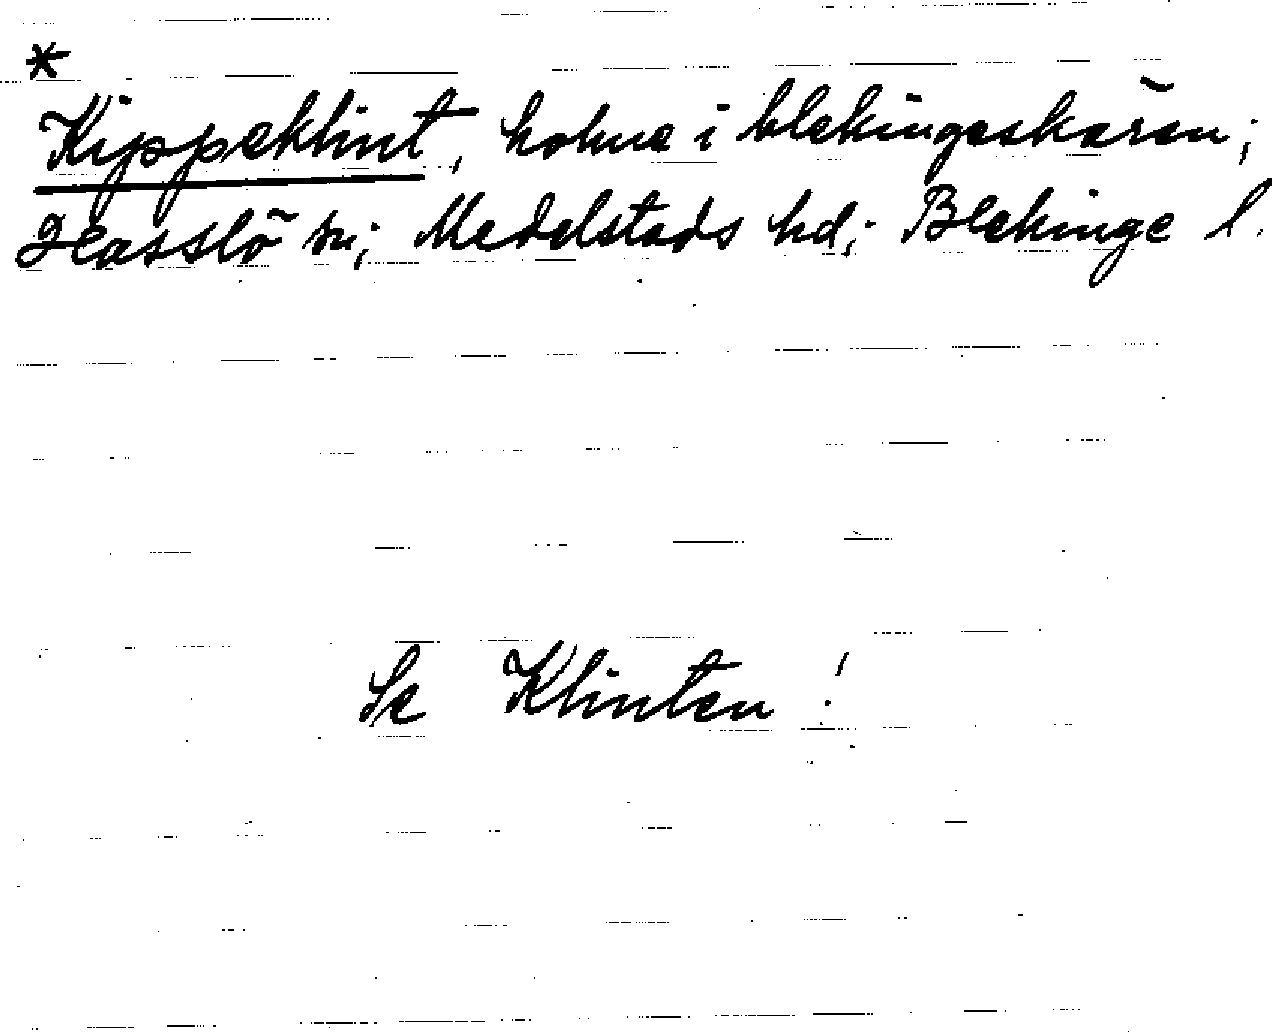 *
Kippeklint, holme i blekingeskären;
Hasslö sn; Medelstads hd; Blekinge l.
Se Klinten!